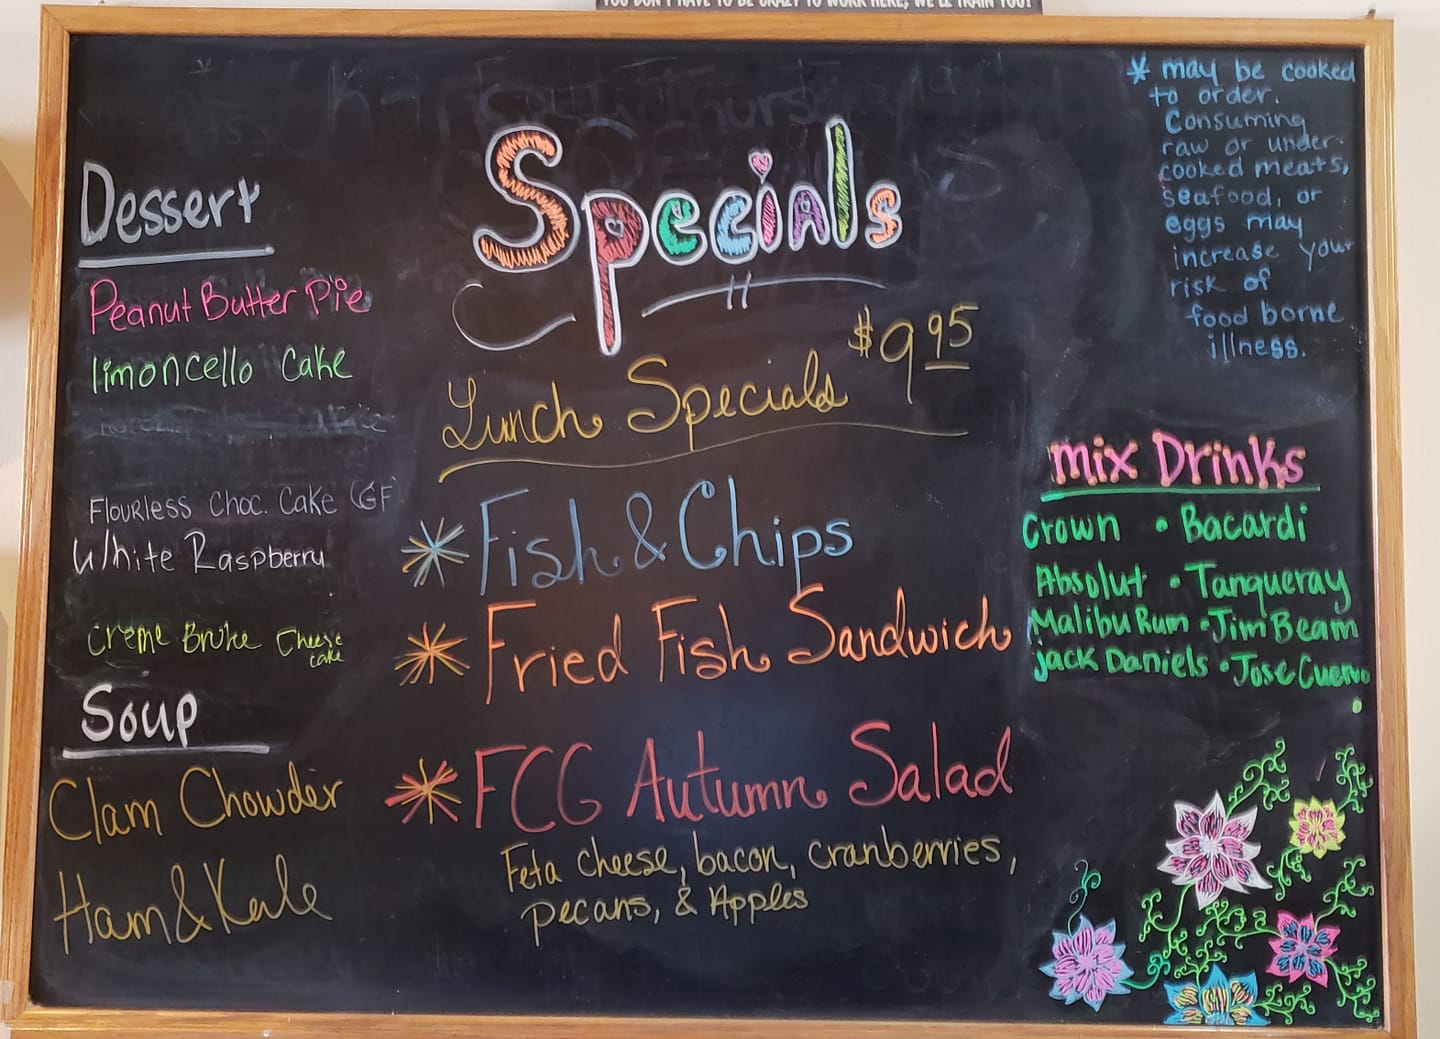 YOU DON'T HAVE TO BE CRAZY TO WORK HERE, WE'LL TRAIN YOU!
Specials
Dessert
Peanut Butter Pie
limoncello Cake
Flourless Choc. Cake (GF
White Raspberry
Creme Brulee Cheese
cake
Soup
Clam Chowder
Ham & Kale
Lunch Specials $9.95
* Fish & Chips
* Fried Fish Sandwich
* FCG Autumn Salad
Feta cheese, bacon, cranberries,
pecans, & Apples
* may be cooked
to order.
Consuming
raw or under-
cooked meats,
seafood, or
eggs may
increase your
risk of
food borne
illness.
Mix Drinks
Crown • Bacardi
Absolut • Tanqueray
Malibu Rum • Jim Beam
Jack Daniels • Jose Cuervo